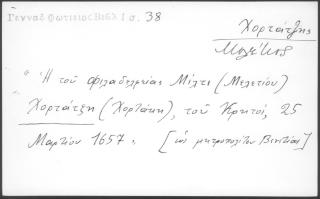 Γενναδ Φωτιειος Βιβλ 1 σ. 38
Χορτάτζης
Μελέτιος
" Ἡ τοῦ Φιλαδελφείας Μελετ (Μελετίου)
Χορτάτζη (Χορτάκη), τοῦ Κρητός, 25
Μαρτίου 1657. [ὡς μητροπολίτου Βενετίας]